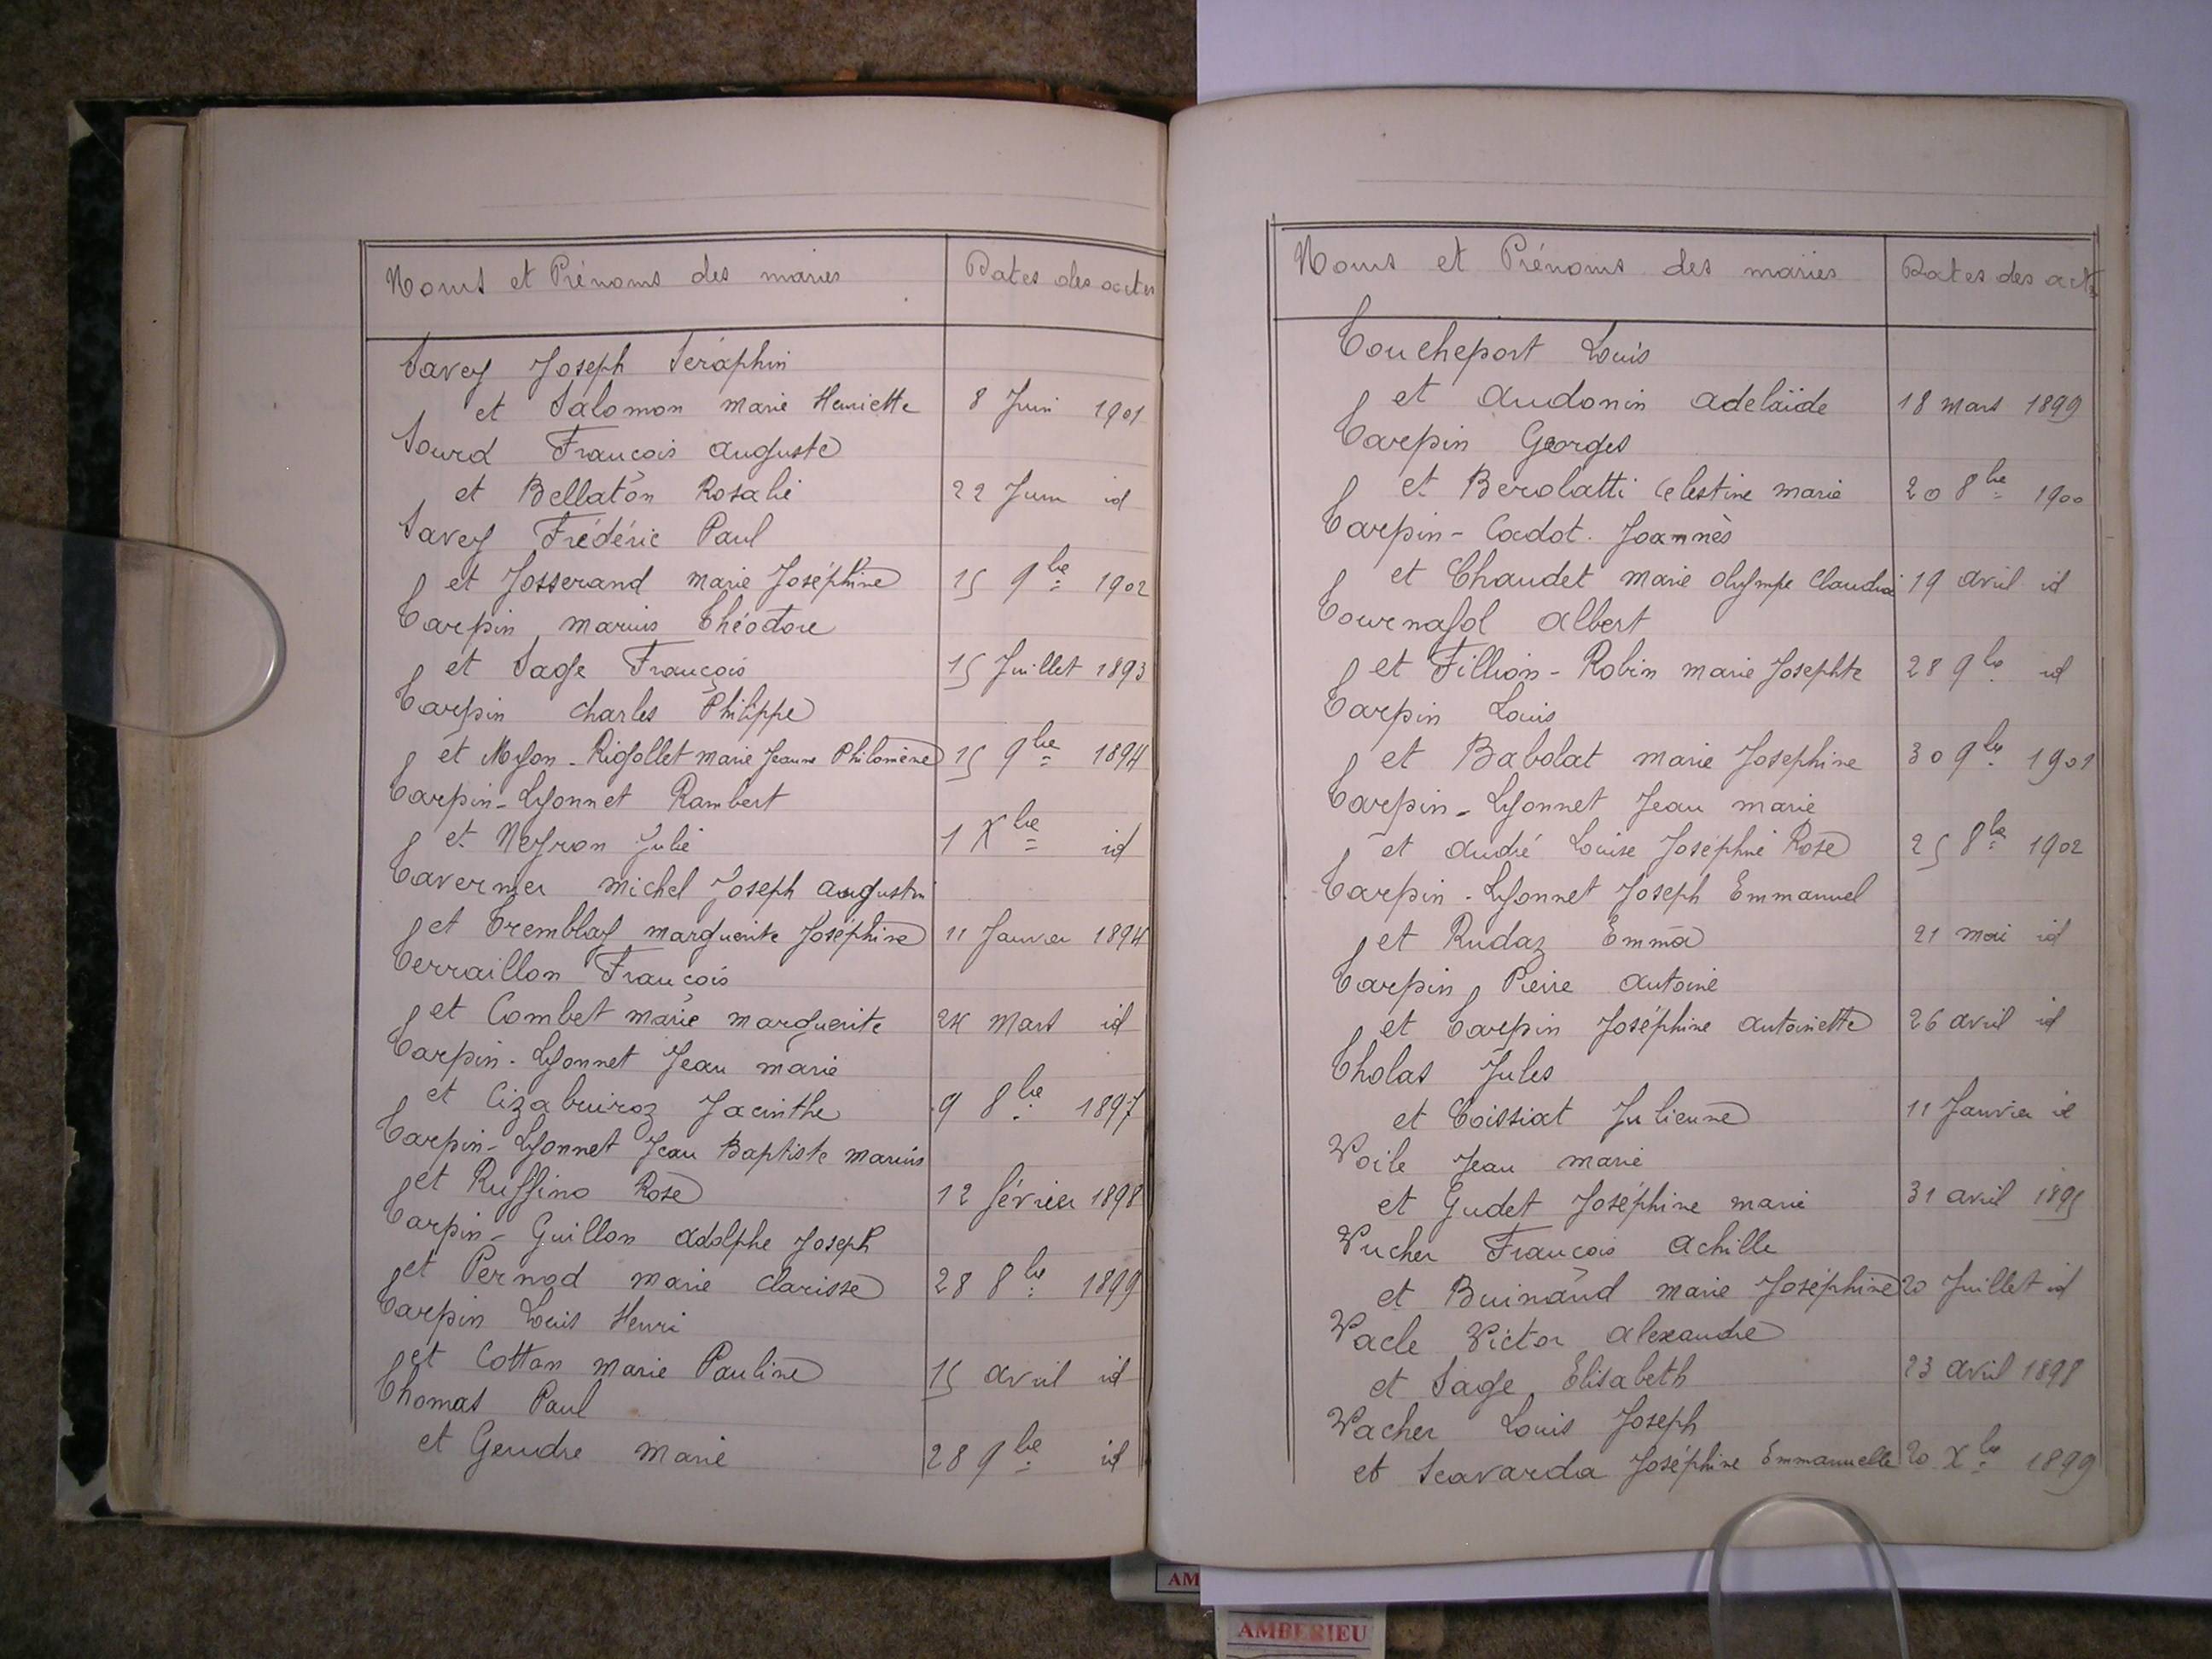 Noms et Prénoms des mariés Dates des actes
Savey Joseph Séraphin
et Salomon Marie Henriette 8 Juin 1901
Sourd François Auguste
et Bellaton Rosalie 22 Juin id
Savey Frédéric Paul
et Josserand Marie Joséphine 15 9bre 1902
Tarpin Marius Théodore
et Sage François 15 Juillet 1893
Tarpin Charles Philippe
et Myon-Rigollet Marie Jeanne Philomène 15 9bre 1894
Tarpin-Lyonnet Rambert
et Neyron Julie 1 Xbre id
Tavernier Michel Joseph Augustin
et Tremblay Marguerite Joséphine 11 Janvier 1894
Terraillon François
et Combet Marie Marguerite 24 Mars id
Tarpin-Lyonnet Jean Marie
et Cizabuiroz Jacinthe 9 8bre 1897
Tarpin-Lyonnet Jean Baptiste Marius
et Ruffino Rose 12 février 1898
Tarpin-Guillon Adolphe Joseph
et Pernod Marie Clarisse 28 8bre 1899
Tarpin Louis Henri
et Cottan Marie Pauline 15 avril id
Thomas Paul
et Gendre Marie 28 9bre id
Noms et Prénoms des mariés Dates des actes
Toucheport Louis
et Audonin Adelaïde 18 Mars 1899
Tarpin Georges
et Berolatti Celestine Marie 20 8bre 1900
Tarpin-Cadot. Joannès
et Chaudet Marie Olympe Claudia 19 avril id
Tournayol Albert
et Fillion-Robin Marie Josephte 28 9bre id
Tarpin Louis
et Babolat Marie Josephine 30 9bre 1901
Tarpin-Lyonnet Jean Marie
et André Louise Joséphine Rose 25 8bre 1902
Tarpin-Lyonnet Joseph Emmanuel
et Rudaz Emma 21 mai id
Tarpin Pierre Antoine
et Tarpin Joséphine Antoinette 26 avril id
Tholas Jules
et Toissiat Julienne 11 Janvier id
Voile Jean Marie
et Gudet Joséphine Marie 31 avril 1895
Vucher François Achille
et Buinand Marie Joséphine 20 Juillet id
Vacle Victor Alexandre
et Sage Elisabeth 23 avril 1898
Vacher Louis Joseph
et Scavarda Joséphine Emmanuelle 20 Xbre 1899
AM
AMBERIEU